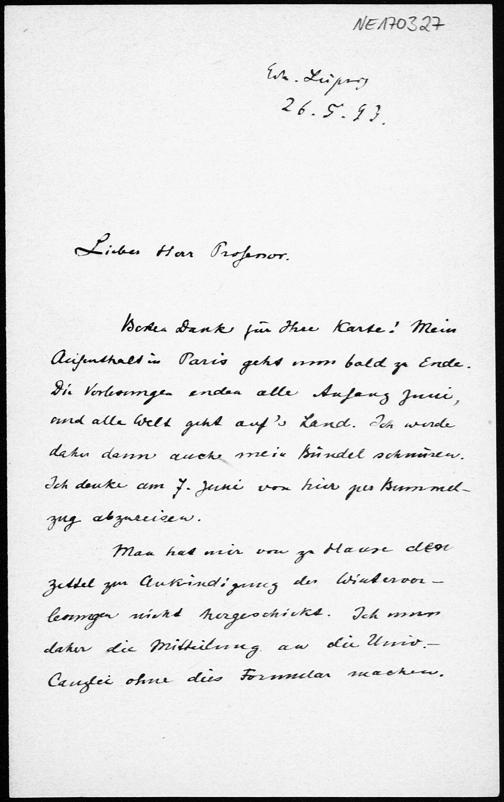 NE170327
26. 5. 93.
Lieber Herr Professor.
Besten Dank für Ihre Karte! Mein
Aufenthalt in Paris geht nun bald zu Ende.
Die Vorlesungen enden alle Anfang Juni,
und alle Welt geht auf's Land. Ich werde
daher dann auch mein Bündel schnüren.
Ich denke am 7. Juni von hier per Bummel-
zug abzureisen.
Man hat mir von zu Hause den
Zettel zur Ankündigung der Wintervor-
lesungen nicht hergeschickt. Ich muss
daher die Mitteilung an die Univ.-
Canzlei ohne dies Formular machen.